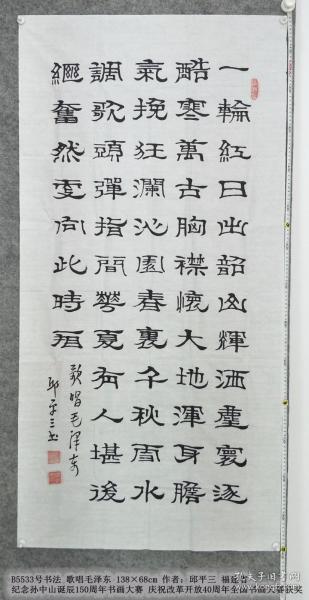 一輪紅日出韶山輝洒塵寰逐
酷寒萬古胸襟懷大地渾身膽
氣挽狂瀾沁園春裏千秋雪水
調歌頭彈指間華夏有人堪後
繼奮然更向此時
歌唱毛澤東
邱平三书
B5533号书法 歌唱毛泽东 138×68cm 作者：邱平三 福建省
纪念孙中山诞辰150周年书画大赛 庆祝改革开放40周年全国书画大赛获奖
孔夫子旧书网